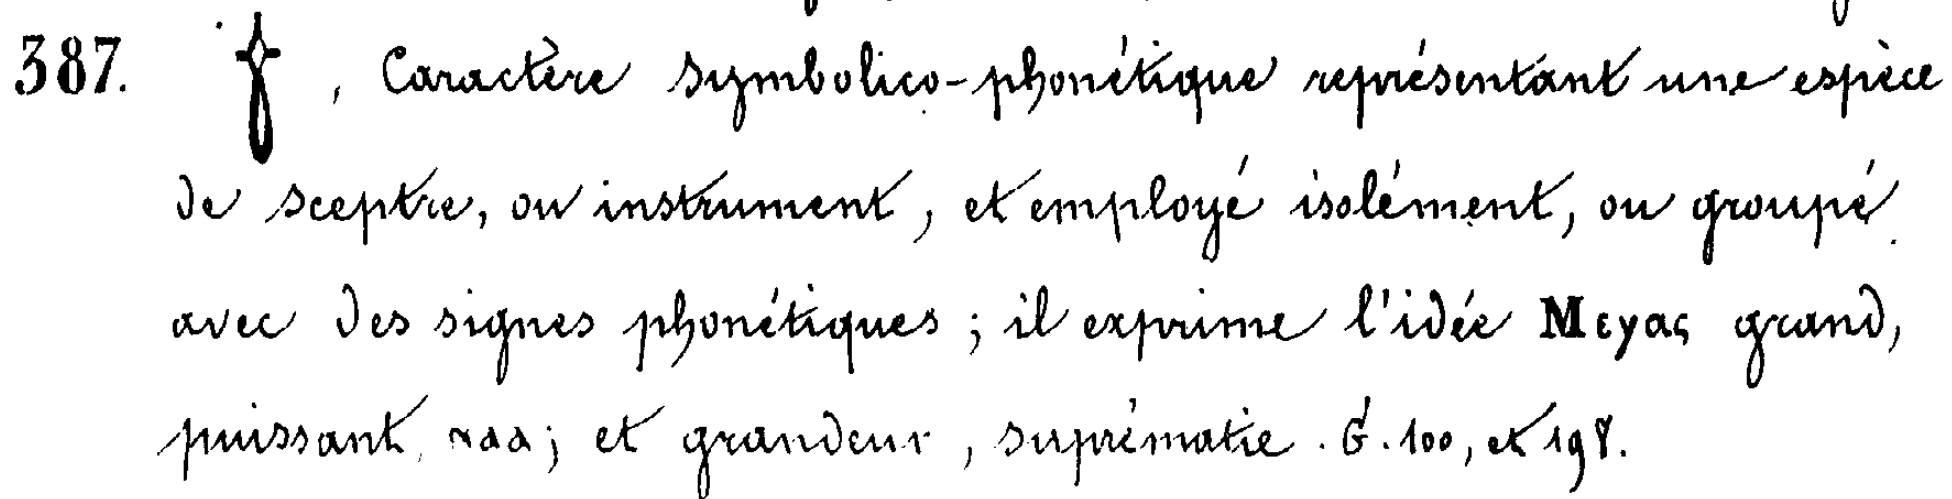 387. , Caractère symbolico-phonétique représentant une espèce
de sceptre, ou instrument, et employé isolément, ou groupé
avec des signes phonétiques ; il exprime l'idée Μεγας grand,
puissant, ⲛⲁⲁ ; et grandeur, suprématie. G. 100, et 198.